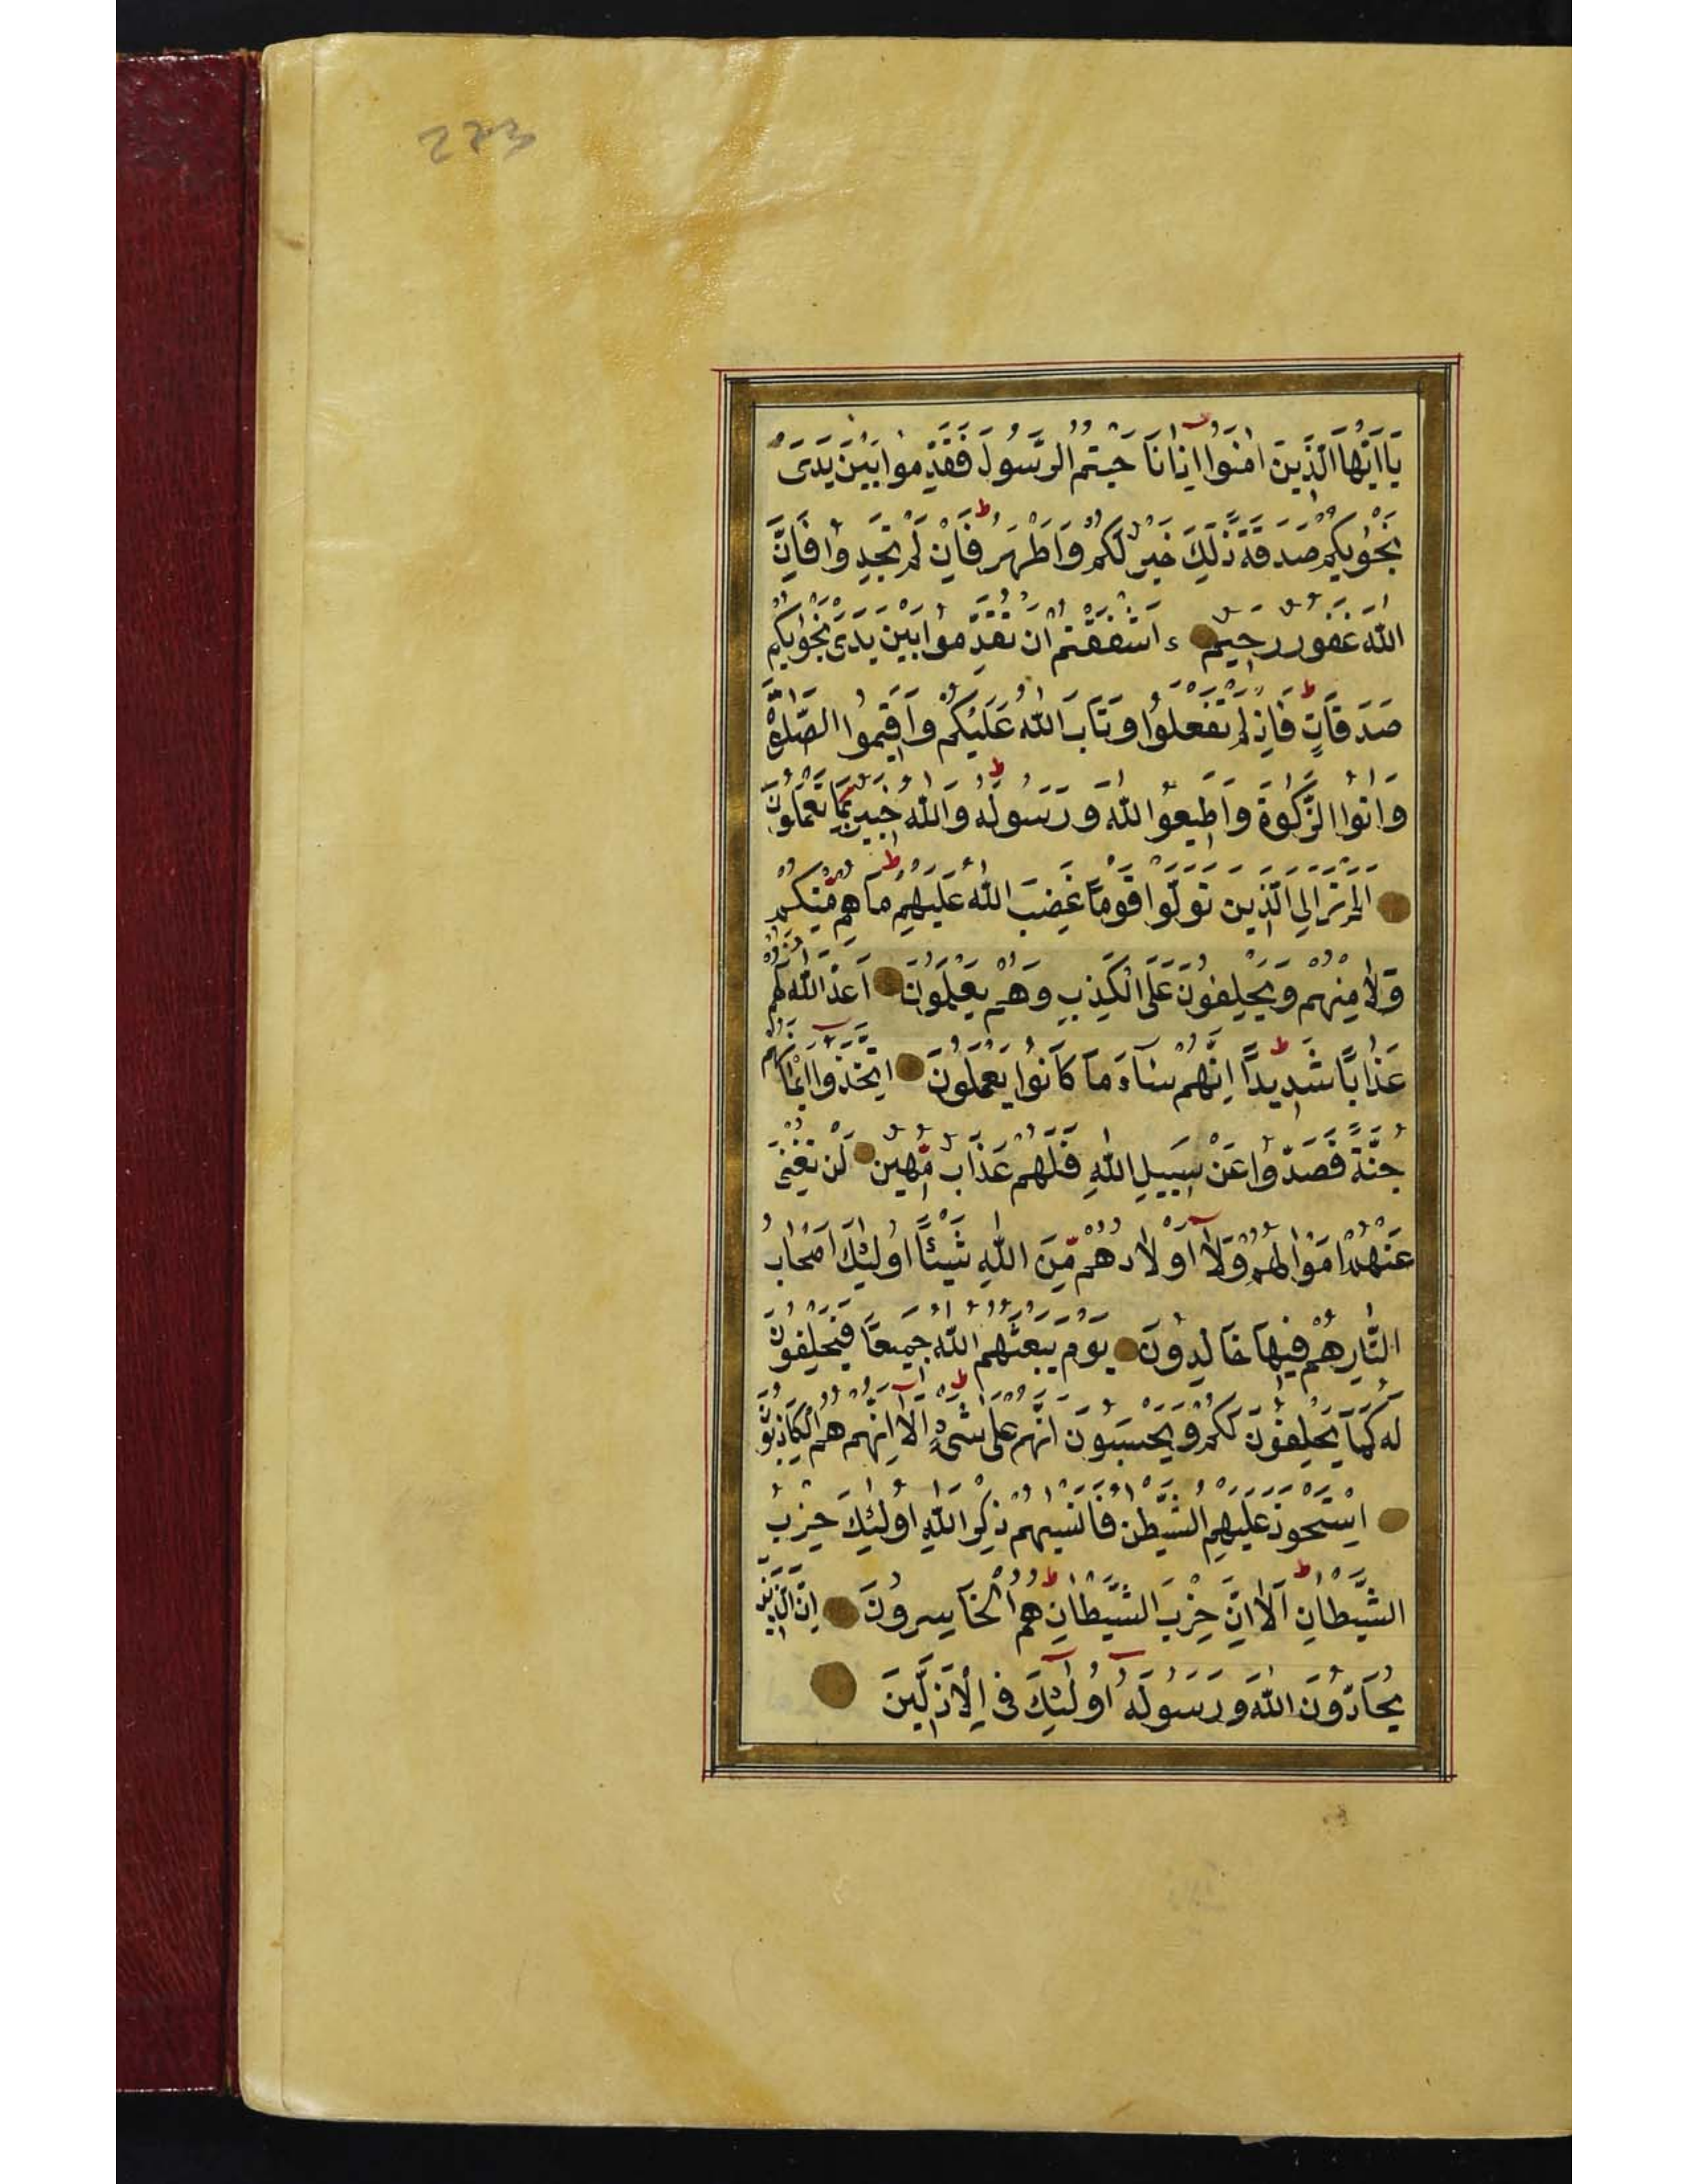 223
يَا اَيُّهَا الَّذِينَ اٰمَنُوا اِذَا نَاجَيْتُمُ الرَّسُولَ فَقَدِّمُوا بَيْنَ يَدَىْ
نَجْوٰيكُمْ صَدَقَةً ذٰلِكَ خَيْرٌ لَكُمْ وَاَطْهَرُ فَاِنْ لَمْ تَجِدُوا فَاِنَّ
اللّٰهَ غَفُورٌ رَحِيمٌ ءَاَشْفَقْتُمْ اَنْ تُقَدِّمُوا بَيْنَ يَدَىْ نَجْوٰيكُمْ
صَدَقَاتٍ فَاِذْ لَمْ تَفْعَلُوا وَتَابَ اللّٰهُ عَلَيْكُمْ وَاَقِيمُوا الصَّلٰوةَ
وَاٰتُوا الزَّكٰوةَ وَاَطِيعُوا اللّٰهَ وَرَسُولَهُ وَاللّٰهُ خَبِيرٌ بِمَا تَعْمَلُونَ
اَلَمْ تَرَ اِلَى الَّذِينَ تَوَلَّوْا قَوْمًا غَضِبَ اللّٰهُ عَلَيْهِمْ مَا هُمْ مِّنْكُمْ
وَلَا مِنْهُمْ وَيَحْلِفُونَ عَلَى الْكَذِبِ وَهُمْ يَعْلَمُونَ اَعَدَّ اللّٰهُ لَهُمْ
عَذَابًا شَدِيدًا اِنَّهُمْ سَاۤءَ مَا كَانُوا يَعْمَلُونَ اِتَّخَذُوا اَيْمَانَهُمْ
جُنَّةً فَصَدُّوا عَنْ سَبِيلِ اللّٰهِ فَلَهُمْ عَذَابٌ مُّهِينٌ لَنْ تُغْنِىَ
عَنْهُمْ اَمْوَالُهُمْ وَلَا اَوْلَادُهُمْ مِّنَ اللّٰهِ شَيْئًا اُولٰئِكَ اَصْحَابُ
النَّارِ هُمْ فِيهَا خَالِدُونَ يَوْمَ يَبْعَثُهُمُ اللّٰهُ جَمِيعًا فَيَحْلِفُونَ
لَهُ كَمَا يَحْلِفُونَ لَكُمْ وَيَحْسَبُونَ اَنَّهُمْ عَلٰى شَىْءٍ اَلَا اِنَّهُمْ هُمُ الْكَاذِبُونَ
اِسْتَحْوَذَ عَلَيْهِمُ الشَّيْطٰنُ فَاَنْسٰيهُمْ ذِكْرَ اللّٰهِ اُولٰئِكَ حِزْبُ
الشَّيْطَانِ اَلَا اِنَّ حِزْبَ الشَّيْطَانِ هُمُ الْخَاسِرُونَ اِنَّ الَّذِينَ
يُحَادُّونَ اللّٰهَ وَرَسُولَهُ اُولٰئِكَ فِى الْاَذَلِّينَ